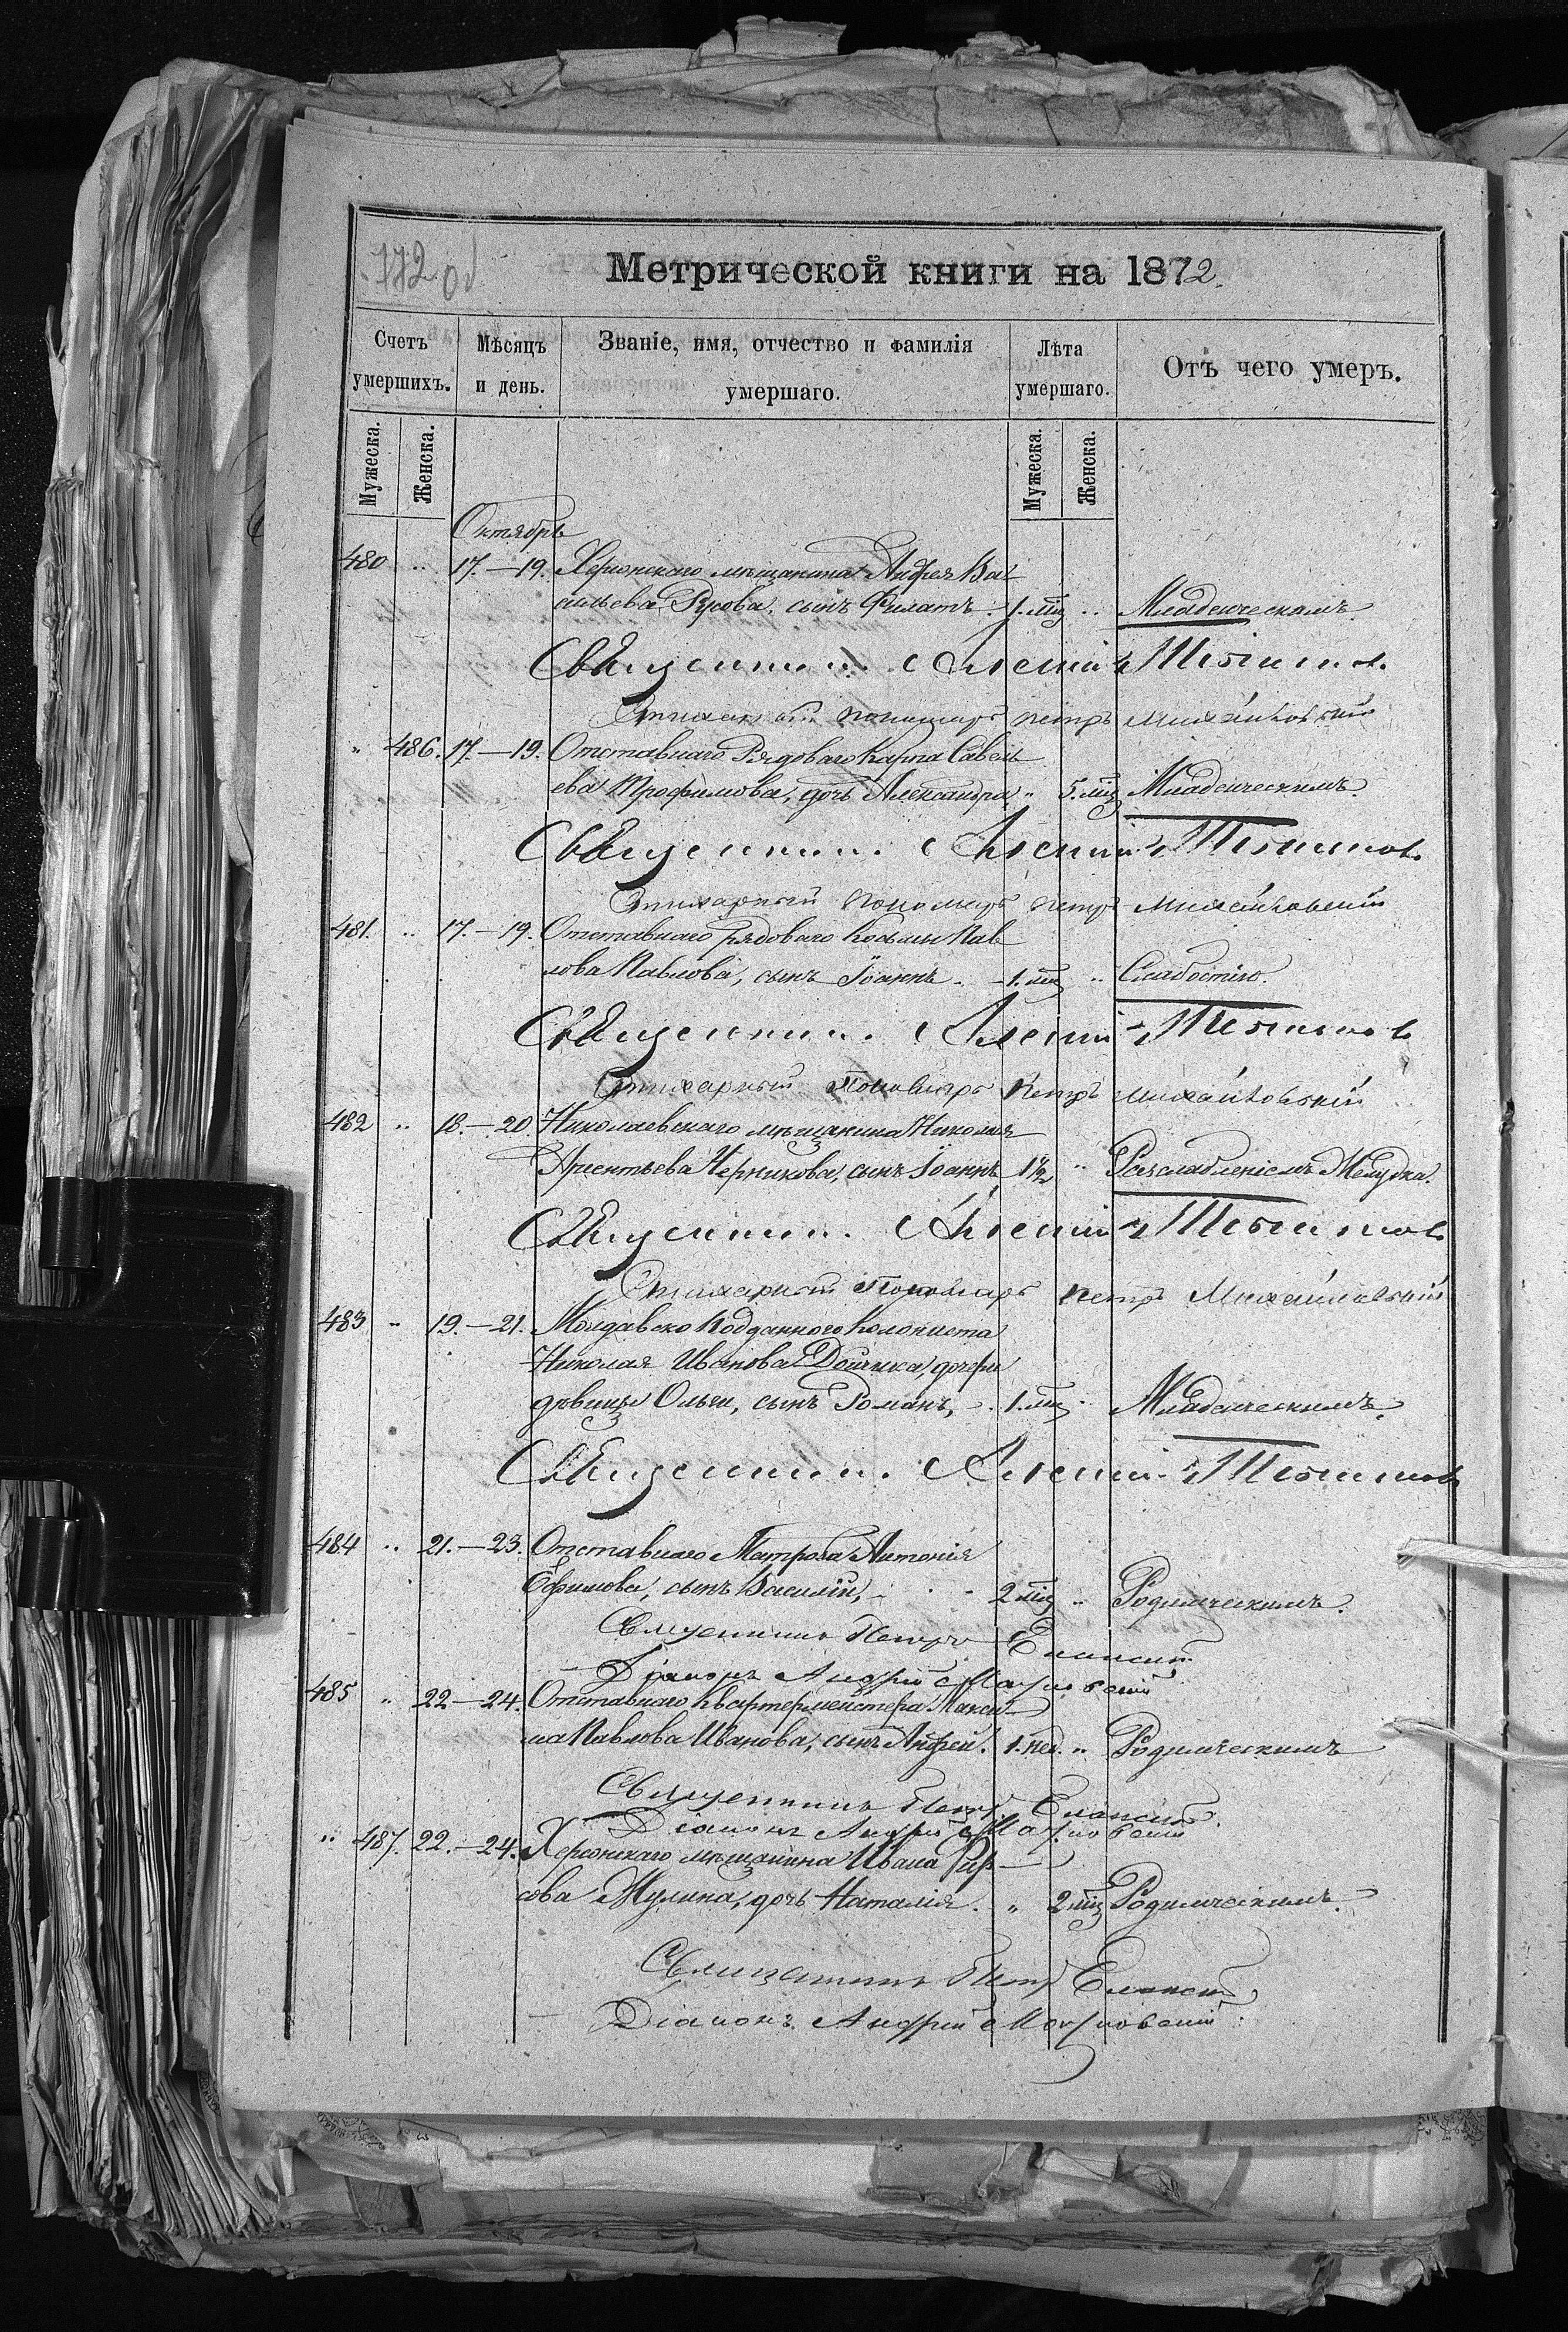 172 об
Метрической книги на 1872.
Счетъ умершихъ.
Мѣсяцъ и день.
Званіе, имя, отчество и фамилія умершаго.
Лѣта умершаго.
Отъ чего умеръ.
Мужеска. Женска. Мужеска. Женска.
Октябрь
480 " 17.—19. Херсонскаго мѣщанина Андрея Ва-
сильева Русова, сынъ Филатъ. 1. мѣц " Младенческимъ.
Священникъ Алексій
Стихарный пономарь Петръ Михайловскій
" 486. 17.—19. Отставнаго Рядоваго Карпа Савель-
ева Трофимова, дочь Александра " 5. мѣц Младенческимъ.
Священникъ Алексій
Стихарный Пономарь Петръ Михайловскій
481. " 17.—19. Отставнаго рядоваго Косьмы Пав-
лова Павлова, сынъ Іоаннъ. 1. мѣц " Слабостію.
Священникъ Алексій
Стихарный Пономарь Петръ Михайловскій
482 " 18.—20. Николаевскаго мѣщанина Николая
Черникова, сынъ Іоаннъ 1½ " Разслабленіемъ Желудка.
Священникъ Алексій
Стихарный Пономарь Петръ Михайловскій
483 " 19.—21. Молдавско подданного Колониста
Николая Иванова дочери
дѣвицы Ольги, сынъ Романъ, 1. мѣц " Младенческимъ.
Священникъ Алексій
484 " 21.—23. Отставнаго Матроса Антонія
Ефимова, сынъ Василій, 2 мѣц " Родимческимъ.
Священникъ Петръ Еланскій
Діаконъ Андрей
485 " 22—24. Отставнаго Квартермейстера Макси-
ма Павлова Иванова, сынъ Андрей. 1. нед. " Родимческимъ
Священникъ Петръ Еланскій.
Діаконъ Андрей
" 487. 22.—24. Херсонскаго мѣщанина Ивана
Мулина, дочь Наталія. " 2 мѣц Родимческимъ.
Священникъ Петръ Еланскій
Діаконъ Андрей